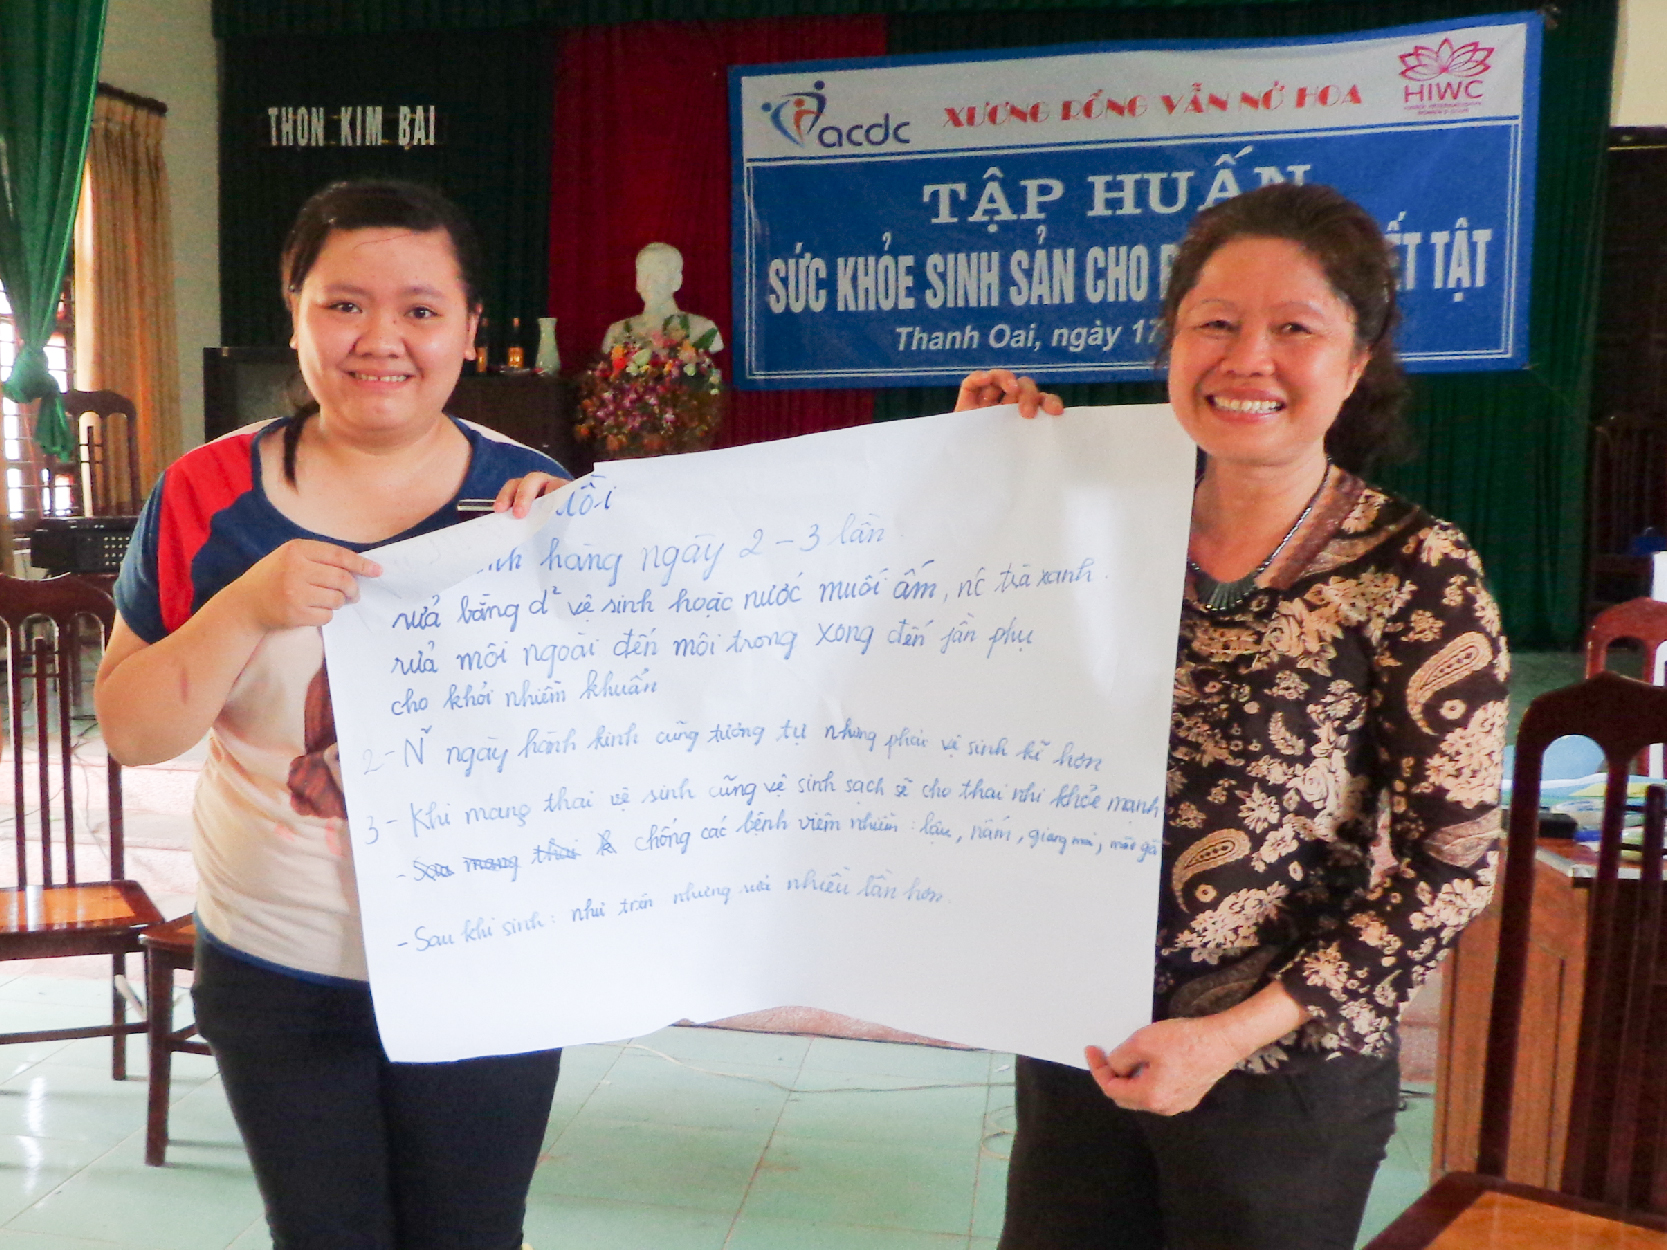 THON KIM BÀI
acdc
XƯƠNG RỒNG VẪN NỞ HOA
HIWC
TẬP HUẤN
SỨC KHỎE SINH SẢN CHO ẾT TẬT
Thanh Oai, ngày 17
hàng ngày 2 - 3 lần.
rửa bằng d² vệ sinh hoặc nước muối ấm, nc trà xanh.
rửa môi ngoài đến môi trong xong đến fần phụ
cho khỏi nhiễm khuẩn
2 - N~ ngày hành kinh cũng tương tự nhưng phải vệ sinh kĩ hơn
3 - Khi mang thai vệ sinh cũng vệ sinh sạch sẽ cho thai nhi khỏe mạnh
- chống các bệnh viêm nhiễm: lậu, nấm, giang mai, mào gà
- Sau khi sinh: như trên nhưng rửa nhiều lần hơn.